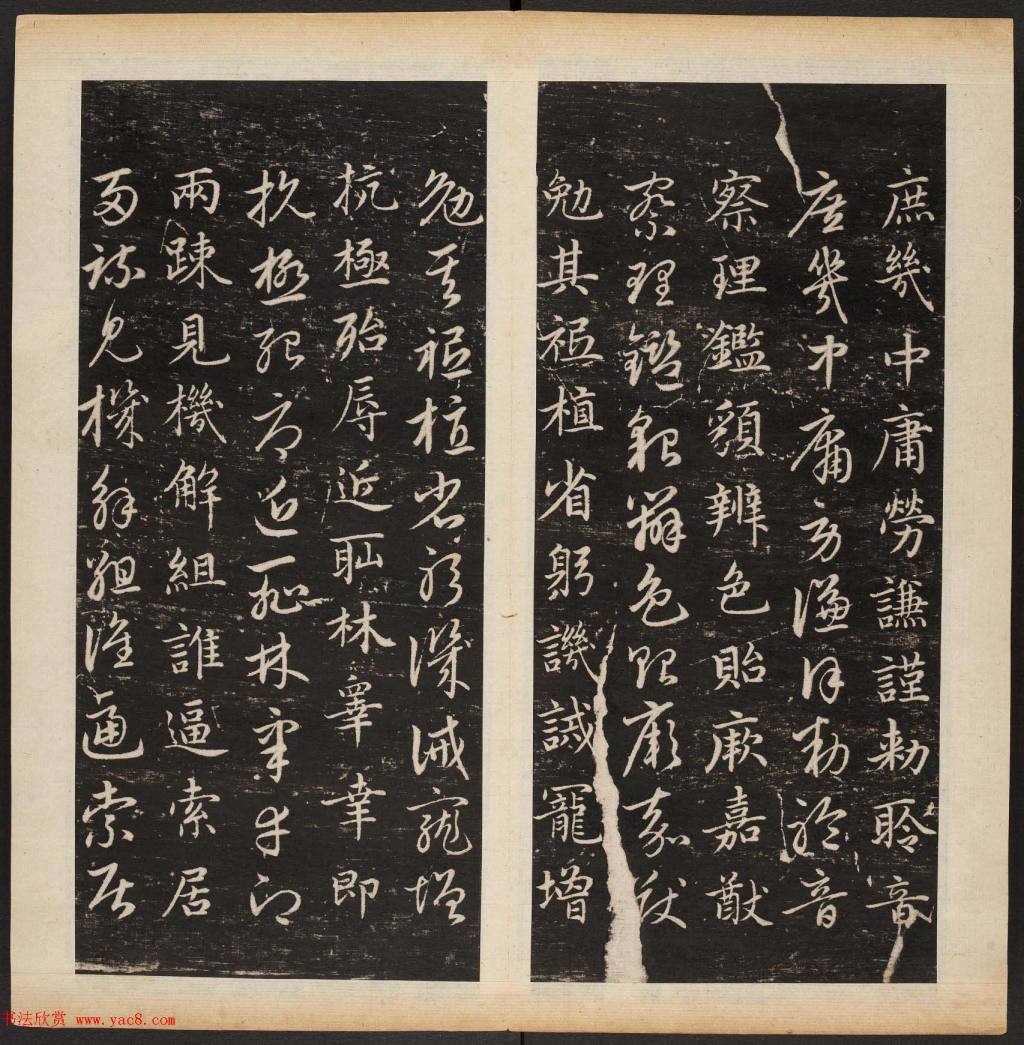 庶幾中庸勞謙謹勅聆音
庶幾中庸勞謙謹勅聆音
察理鑑貌辨色貽厥嘉猷
察理鑑貌辨色貽厥嘉猷
勉其祗植省躬譏誡寵增
勉其祗植省躬譏誡寵增
抗極殆辱近耻林睪幸即
抗極殆辱近耻林皋幸即
兩踈見機解組誰逼索居
兩疎見機解組誰逼索居
书法欣赏 www.yac8.com